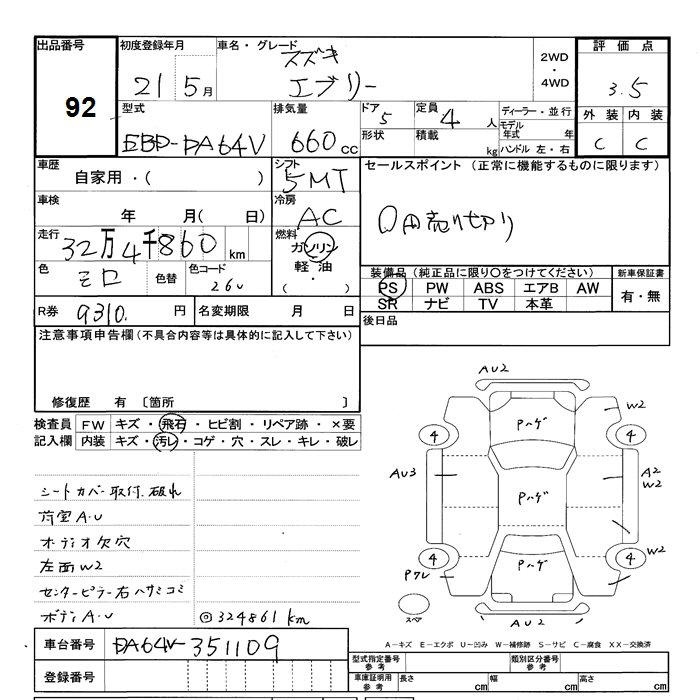 出品番号
92
初度登録年月
21 5月
車名・グレード
スズキ
エブリー
2WD
・
4WD
評価点
3.5
外装 内装
C C
型式
EBD-DA64V
排気量
660cc
ドア
5
定員
4人
形状
積載
kg
ディーラー・並行
モデル年式 年
ハンドル 左・右
車歴
自家用・( )
シフト
5MT
セールスポイント (正常に機能するものに限ります)
0円売り切り
車検
年 月( 日)
冷房
AC
走行
32万4千860km
燃料
ガソリン
軽油
( ・ )
色
シロ
色替
色コード
26U
装備品(純正品に限り○をつけてください)
PS PW ABS エアB AW
SR ナビ TV 本革
新車保証書
有・無
R券
9310. 円
名変期限
月 日
後日品
注意事項申告欄(不具合内容等は具体的に記入して下さい)
修復歴 有 〔箇所 〕
検査員
記入欄
FW キズ・飛石・ヒビ割・リペア跡・×要
内装 キズ・汚レ・コゲ・穴・スレ・キレ・破レ
シートカバー取付.破れ
荷室A.U
オーディオ欠穴
左面W2
センターピラー右ハサミコミ
ボディA.U
◎324861km
AU2
Pハゲ
W2
4
4
AU3
Pハゲ
A2
W2
4
4
W2
Pハゲ
Pワレ
スペア
AU2
A-キズ E-エクボ U-凹み W-補修跡 S-サビ C-腐食 XX-交換済
車台番号
DA64V-351109
登録番号
型式指定番号
参考
類別区分番号
参考
車庫証明用
参考
長さ cm 幅 cm 高さ cm